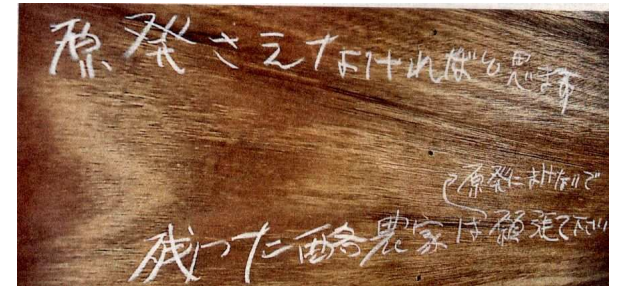 原発さえなければと思います
原発にまけないで
残った酪農家は願張て下さい